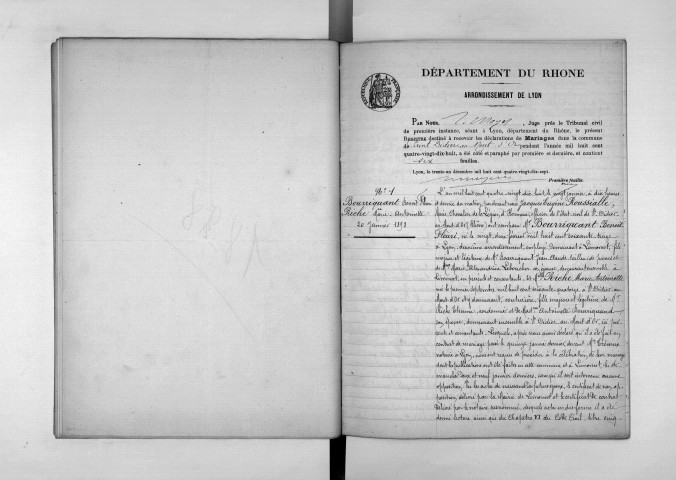 DÉPARTEMENT DU RHONE
ARRONDISSEMENT DE LYON
PAR NOUS, Juge près le Tribunal civil
de première instance, séant à Lyon, département du Rhône, le présent
REGISTRE destiné à recevoir les déclarations de Mariages dans la commune
de Saint Didier au Mont d'Or pendant l'année mil huit cent
quatre-vingt-dix-huit, a été coté et paraphé par première et dernière, et contient
six feuilles.
Lyon, le trente un décembre mil huit cent quatre-vingt-dix-sept.
Première feuille.
No 1
Bourriquant Benoit Fleuri
Riche Marie Antoinette
20 Janvier 1898
L'an mil huit cent quatre vingt dix huit, le vingt janvier, à dix heures
et demie du matin, pardevant nous Jacques Eugène Roussialle,
Maire, Chevalier de la Légion d'Honneur, officier de l'état civil de St Didier
au Mont d'Or (Rhône), ont comparu Mr Bourriquant Benoit
Fleuri, né le vingt deux février mil huit cent soixante treize
à Lyon, deuxième arrondissement, employé, demeurant à Limonest, fils
majeur et légitime de Mr Bourriquant Jean Claude, tailleur de pierres et
de Mme Marie son épouse, demeurant ensemble à
Limonest, ici présents et consentants; Et Mlle Riche Marie Antoinette
née le premier septembre mil huit cent soixante quatorze à St Didier au
Mont d'Or et y demeurant, couturière, fille majeure et légitime de Mr
Riche Etienne, cordonnier et de Madme Antoinette Bourricand
son épouse, demeurant ensemble à St Didier au Mont d'Or, ici pré-
sents et consentants. Lesquels, après nous avoir déclaré qu'il a été fait un
contrat de mariage passé le quinze janvier dernier, devant Me
notaire à Lyon, nous ont requis de procéder à la célébration de leur mariage
dont les publications ont été faites en cette commune et à Limonest, les di-
manches deux et neuf janvier derniers, sans qu'il soit intervenu aucune
opposition. Vu les actes de naissance des futurs époux, le certificat de non op-
position délivré par la Mairie de Limonest et le certificat de contrat
délivré par le notaire susnommé, desquels actes en due forme il a été
donné lecture ainsi que du Chapitre VI du Code Civil, titre cinq